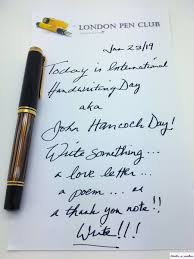 LONDON PEN CLUB
Jan 23/19
Today is International
Handwriting Day
aka
John Hancock Day!
Write something...
a love letter...
a poem... or
a thank you note!!
Write!!!